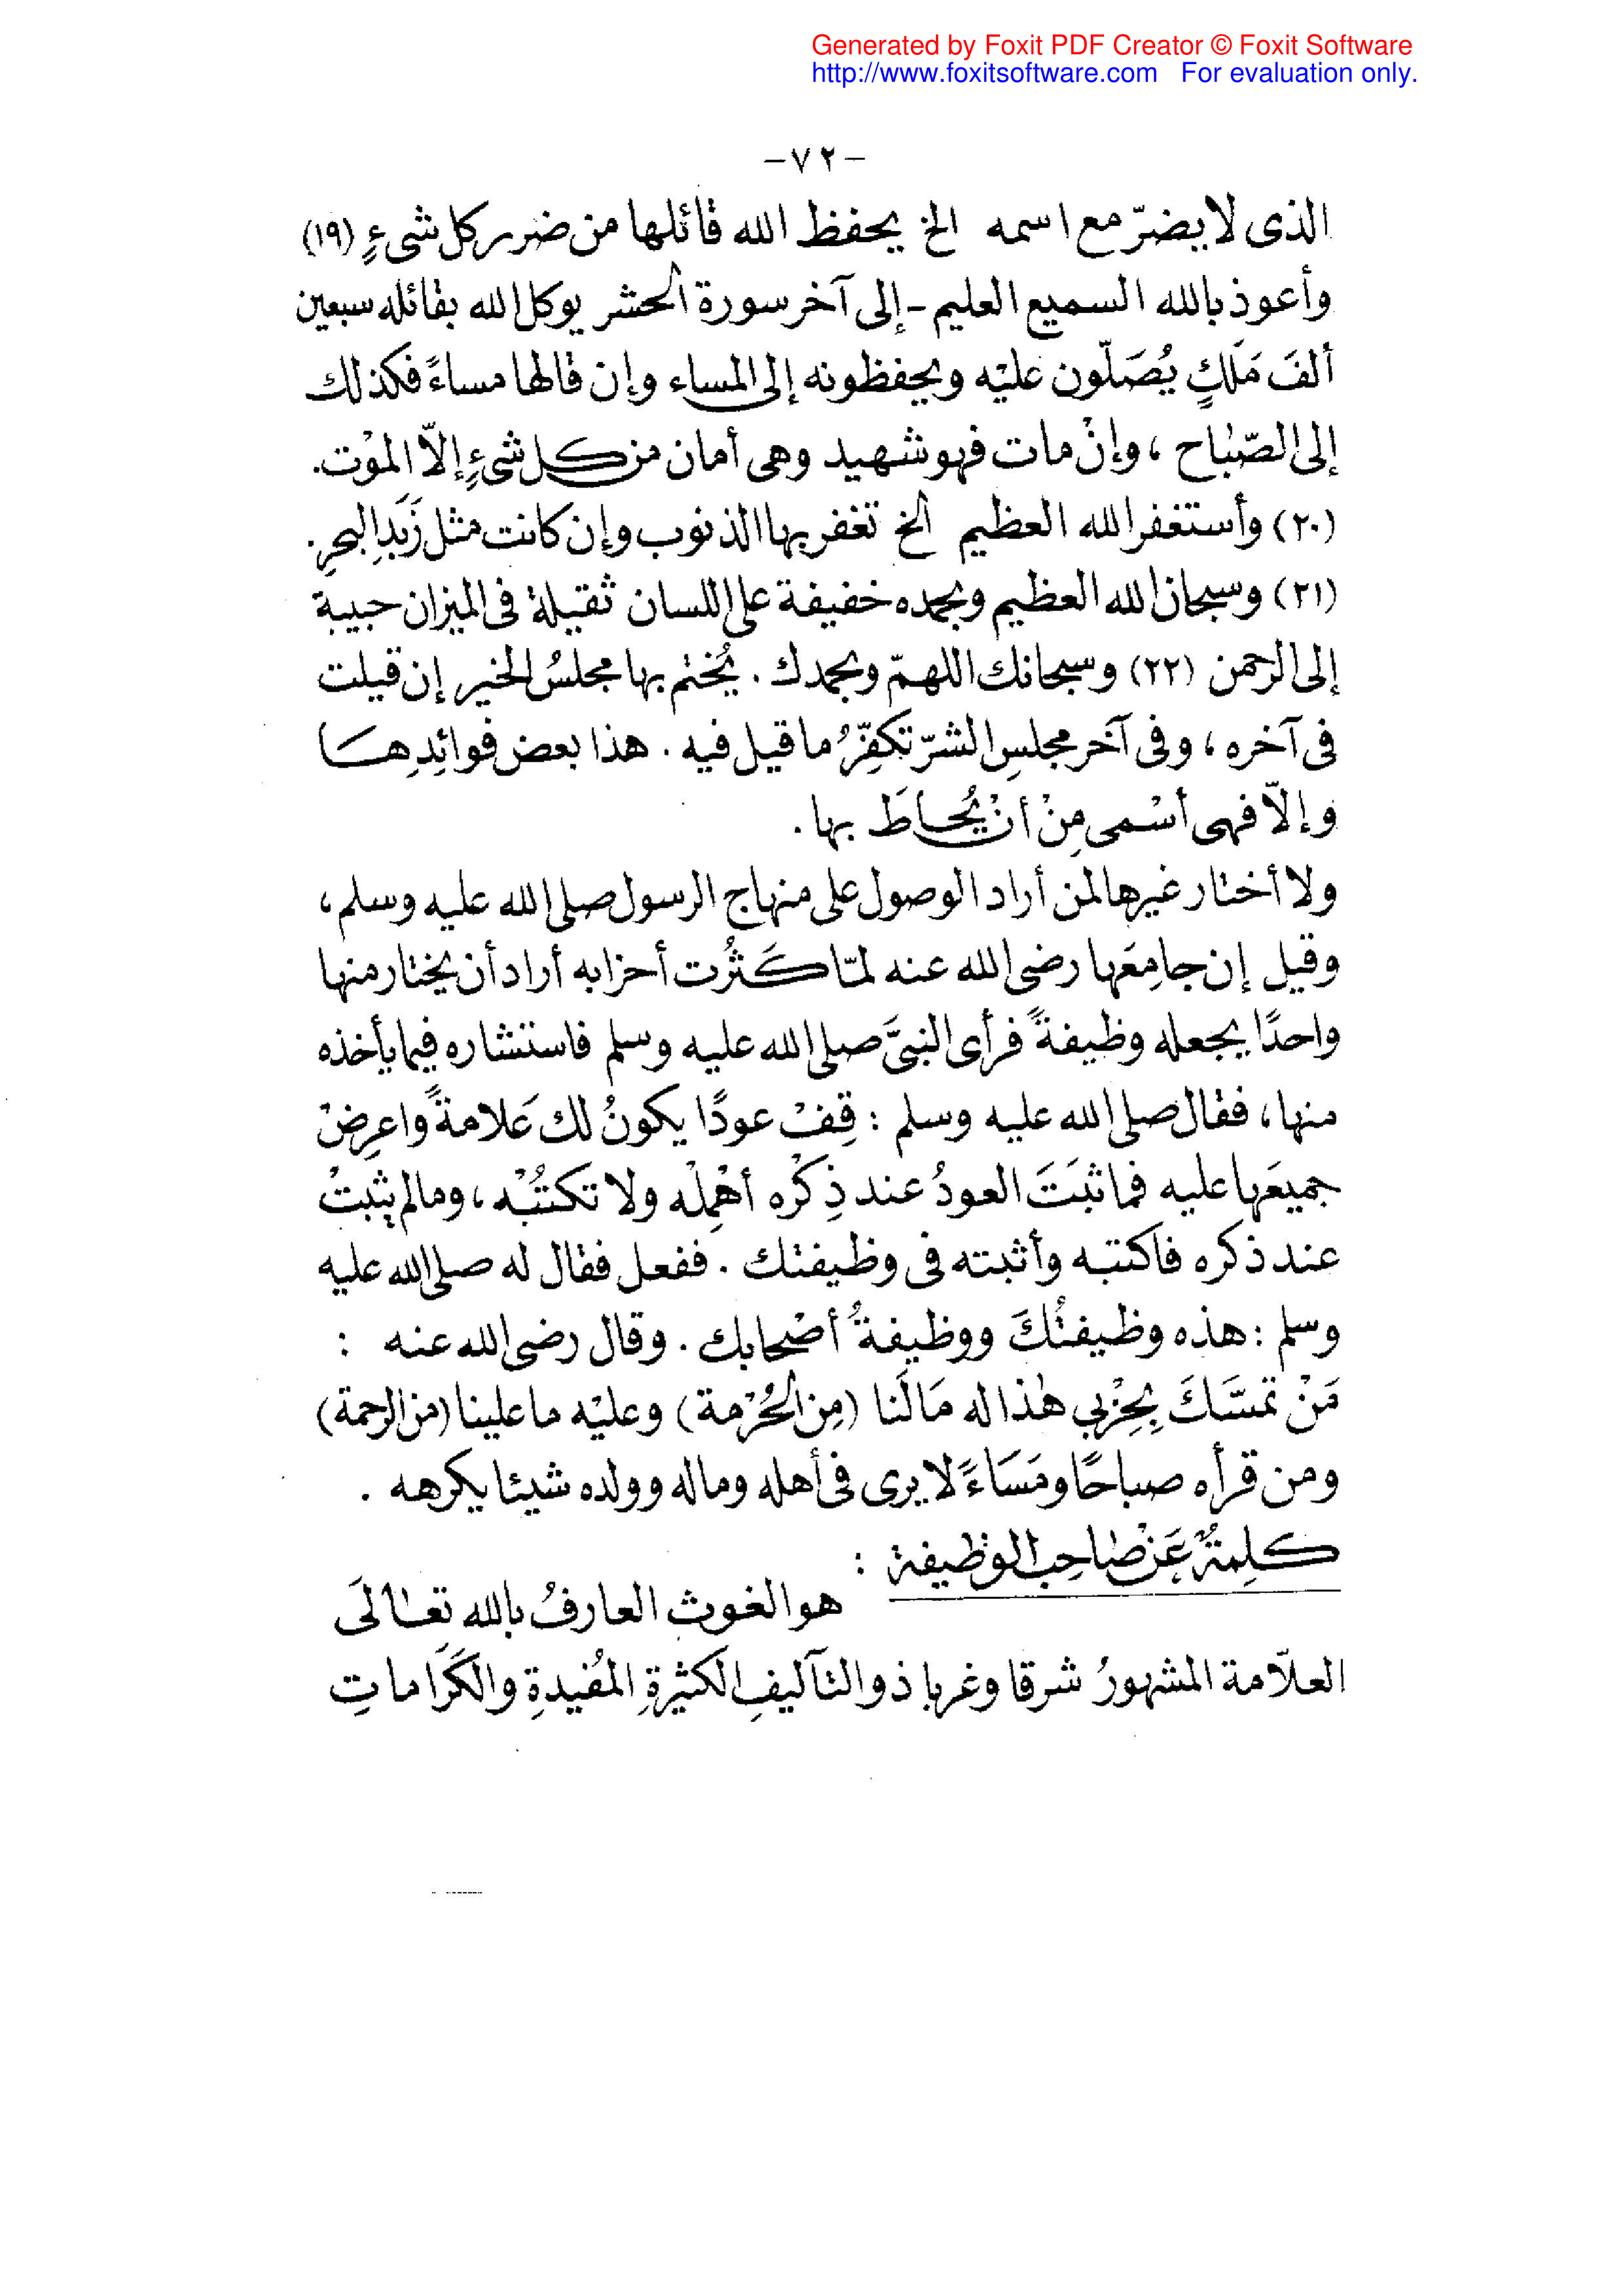 Generated by Foxit PDF Creator © Foxit Software
http://www.foxitsoftware.com For evaluation only.
-٧٢-
الذى لا يضرّ مع اسمه الخ يحفظ الله قائلها من ضرر كل شىءٍ (١٩)
وأعوذ بالله السميع العليم - إلى آخر سورة الحشر يوكل الله بقائله سبعين
ألفَ مَلَكٍ يُصَلّون عليْه ويحفظونه إلى المساء وإن قالها مساءً فكذلك
إلى الصّباح ، وإنْ مات فهو شهيد وهى أمان من كل شىءٍ إلاّ الموْت.
(٢٠) وأستغفر الله العظيم الخ تغفر بها الذنوب وإن كانت مثل زَبَدِ البحرِ.
(٢١) وسبحان الله العظيم وبحمده خفيفة على اللسان ثقيلة فى الميزان حبيبة
إلى الرحمن (٢٢) وسبحانك اللهمّ وبحمدك . يُختم بها مجلسُ الخير إن قيلت
فى آخره ، وفى آخر مجلسِ الشرّ تكفِّرُ ما قيل فيه . هذا بعض فوائدِها
وإلاّ فهى أسْمى مِنْ أنْ يُحاطَ بها .
ولا أختار غيرها لمن أراد الوصول على منهاج الرسول صلى الله عليه وسلم ،
وقيل إن جامِعَها رضى الله عنه لمّا كَثُرت أحزابه أراد أن يختار منها
واحدًا يجعله وظيفةً فرأى النبىَّ صلى الله عليه وسلم فاستشاره فيما يأخذه
منها ، فقال صلى الله عليه وسلم : قِفْ عودًا يكونُ لك عَلامةً واعرِضْ
جميعَها عليه فما ثبَتَ العودُ عند ذِكْره أهْمِلْه ولا تكتُبْه ، وما لم يثبتْ
عند ذكره فاكتبه وأثبته فى وظيفتك . ففعل فقال له صلى الله عليه
وسلم : هذه وظيفتُكَ ووظيفةُ أصْحابك . وقال رضى الله عنه :
مَنْ تمسَّكَ بِحِزْبي هٰذا له مَا لَنا (مِن الحُرْمة) وعليْه ما علينا (من الرحمة)
ومن قرأه صباحًا ومَسَاءً لا يرى فى أهله وماله وولده شيئا يكرهه .
كلِمةٌ عَنْ صَاحِب الوظيفة :
هو الغوث العارفُ بالله تعَالَى
العلاّمة المشهورُ شرقا وغربا ذو التآليفِ الكثيرةِ المُفيدةِ والكَرَاماتِ